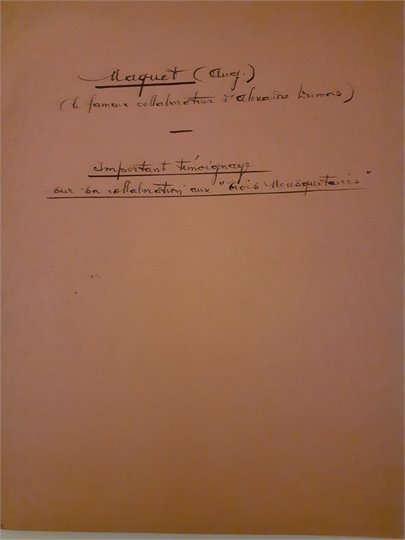 Maquet (Aug.)
(le fameux collaborateur d'Alexandre Dumas)
—
Important témoignage
sur sa collaboration aux "Trois Mousquetaires"